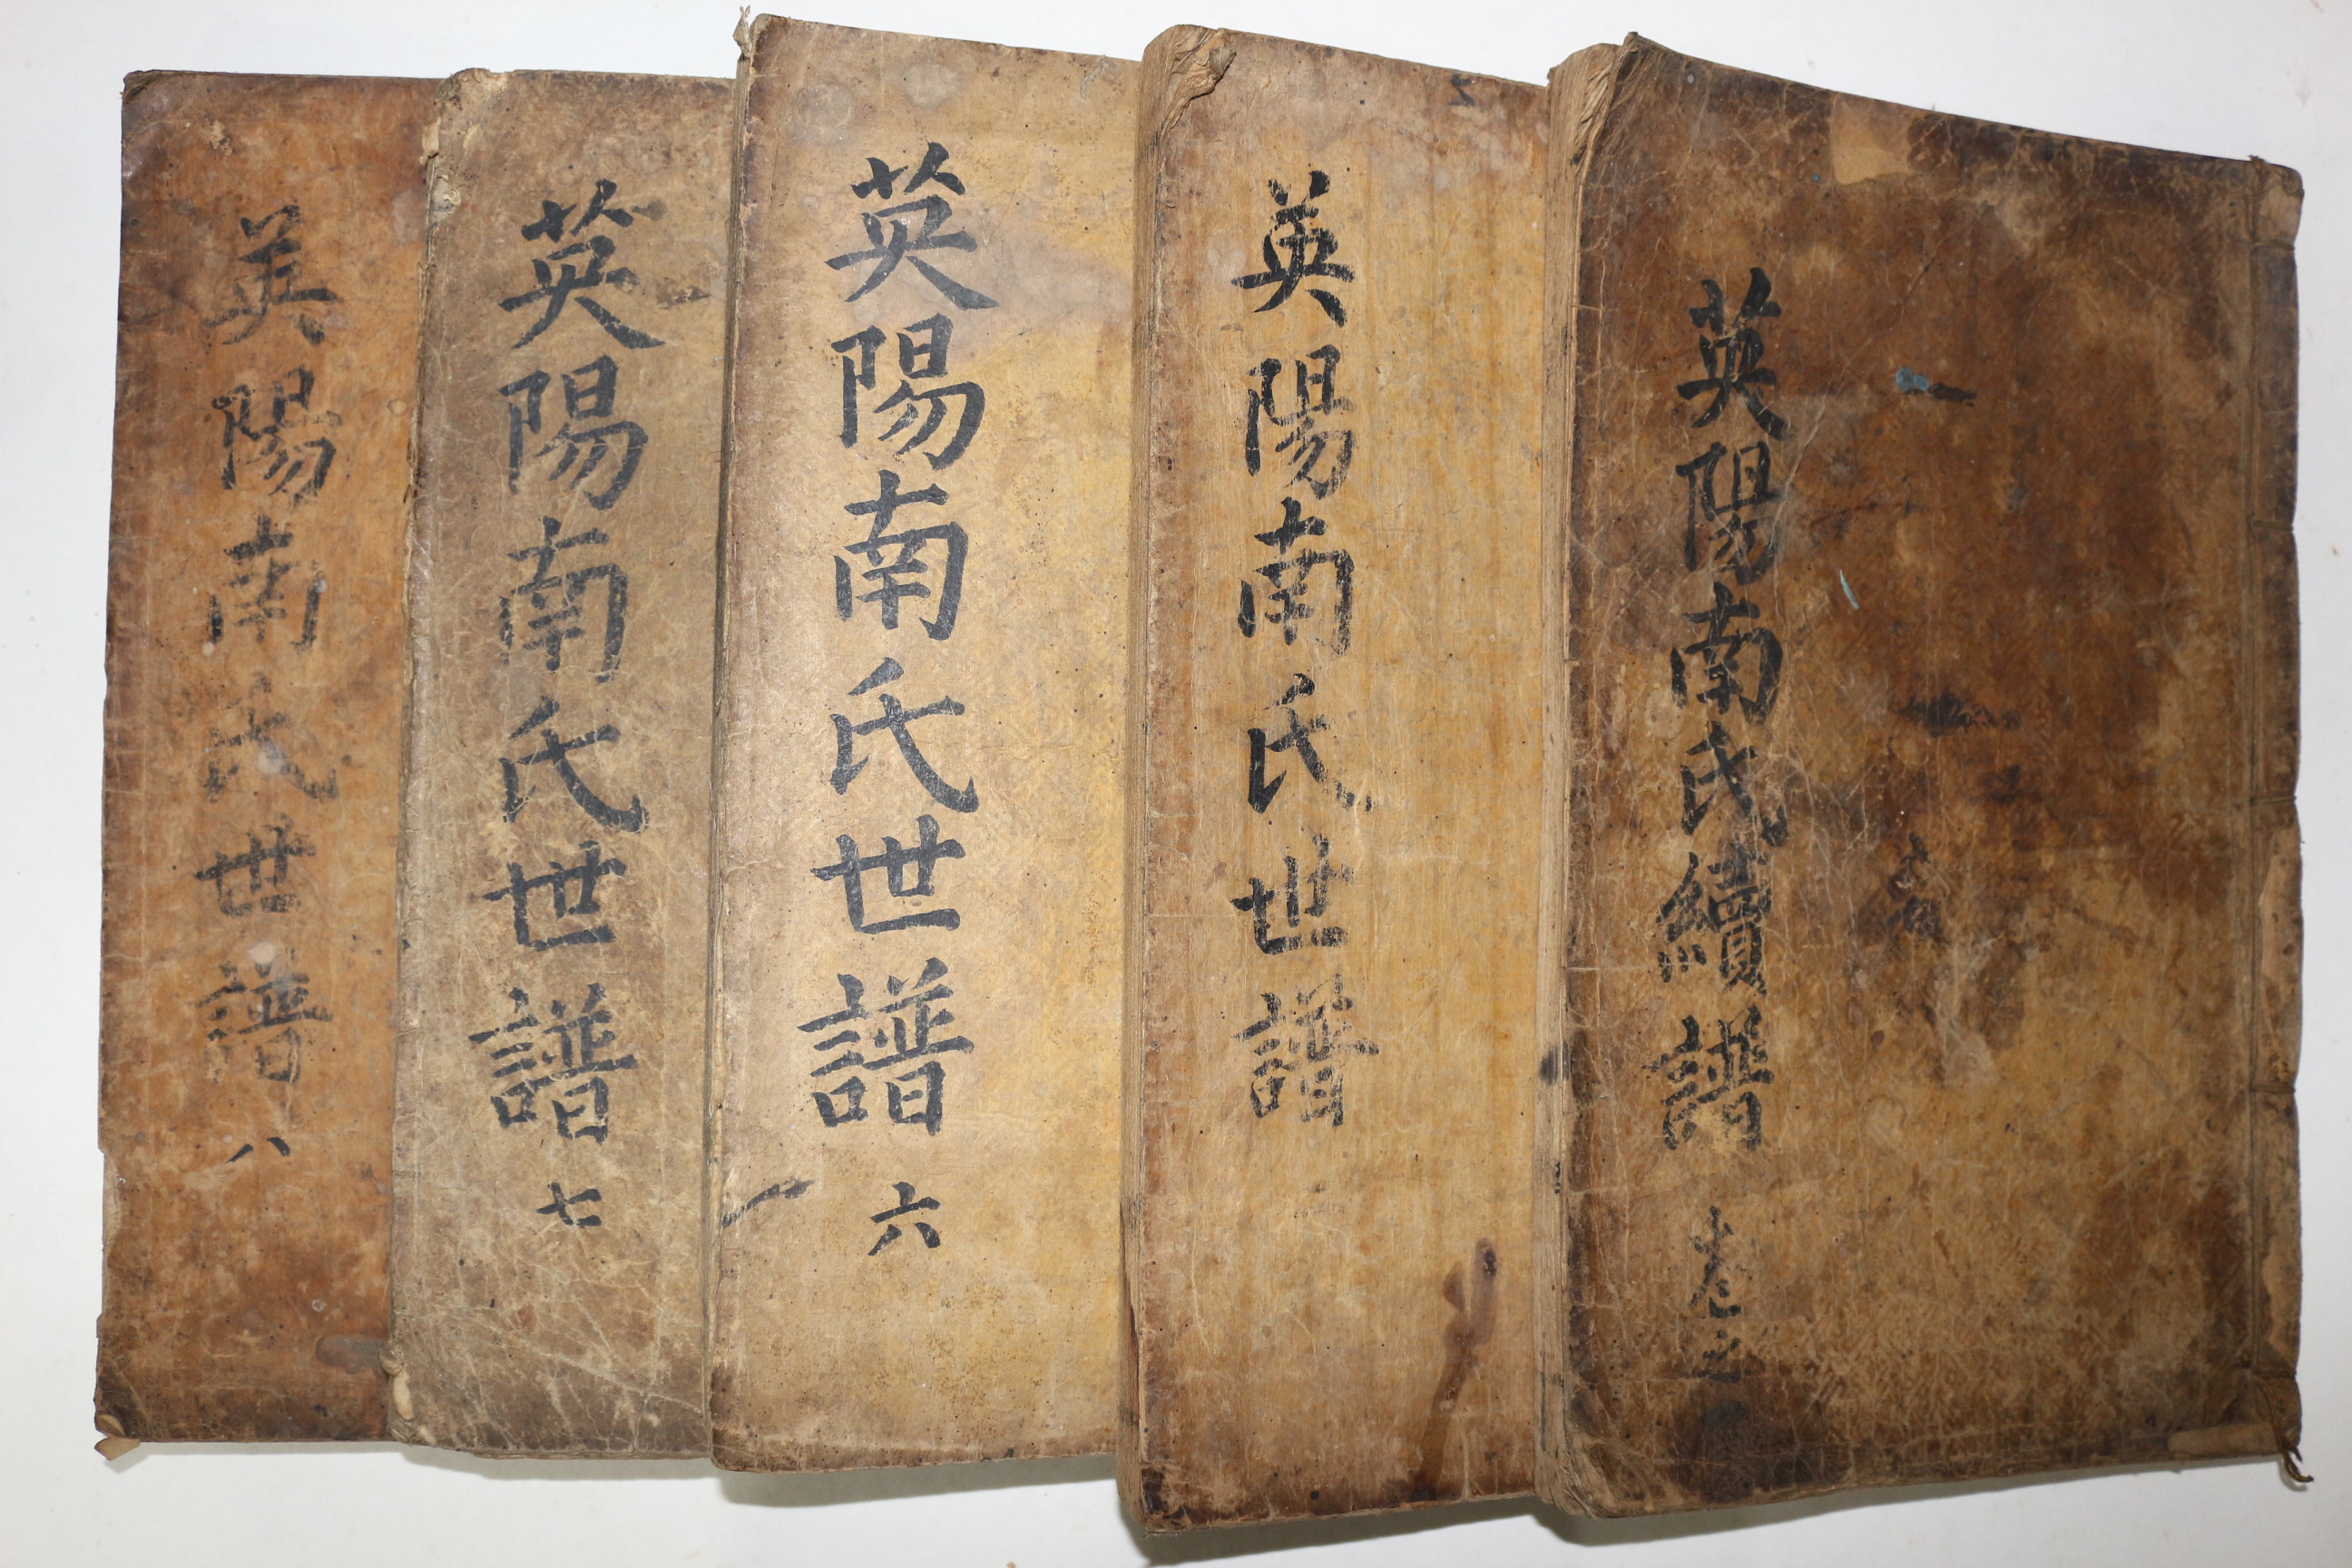 英陽南氏續譜 卷之
英陽南氏世譜 二
英陽南氏世譜 六
英陽南氏世譜 七
英陽南氏世譜 八